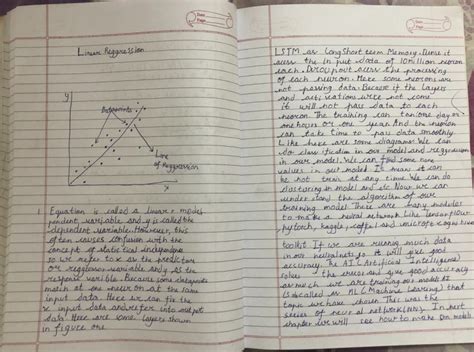 Linear Reggression
y
Datapoints
Line
of Reggression
x
1 Equation is called a linear model
pendent, variable and y is called the
dependent variable. However, this
often causes confusion with the
concept of statistical independence
so we refer to x as the predictor
or reggression variable and y as the
response variable. Because some datapoints
match at one neuron at the same
input data. Here we can fix the
x input data and refer into output
data. Here are some layers shown
in figure one
Date
Page
LSTM as Long Short term Memory. Dense it
acess the in put data of 10 million neuron
each. Droupout acess the processing
of each neuron. Here some neurons are
not passing data. Because if the layers
and activation were not come
it will not pass data to each
neuron. The training can take one day or
one hours or one year And the neuron
can take time to pass data smoothly
Like here are some diagrams. We can
do classification in our model and reggression
in our model. We can find some
values in our model It mean it can
be not train at any time. We can do
clustering in model and etc Now we can
under stand the algorithm of our
training model These are many modules
to make a neural network Like tensorflow
pytorch, kaggle, caffe and microsoft cognitive
toolkit If we are running much data
in our neural nets so it will give good
accuracy. The AI (Artificial Intelligence)
solves the error and give good accuracy
as much we are training our model
is also called as ML (Machine Learning) that
topic we have shown This was the
series of neural network (NN). In next
chapter we will see how to make Dn models